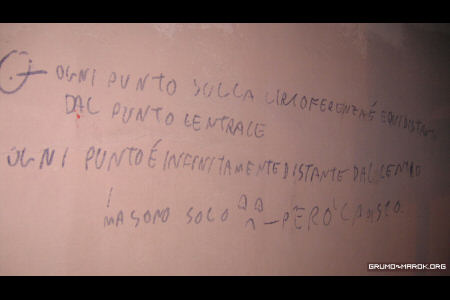 OGNI PUNTO SULLA CIRCOFERENZA É EQUIDISTANTE
DAL PUNTO CENTRALE
OGNI PUNTO É INFINITAMENTE DISTANTE DAL CENTRO
MA SONO SOLO PERO
GRUMO-MAROK.ORG